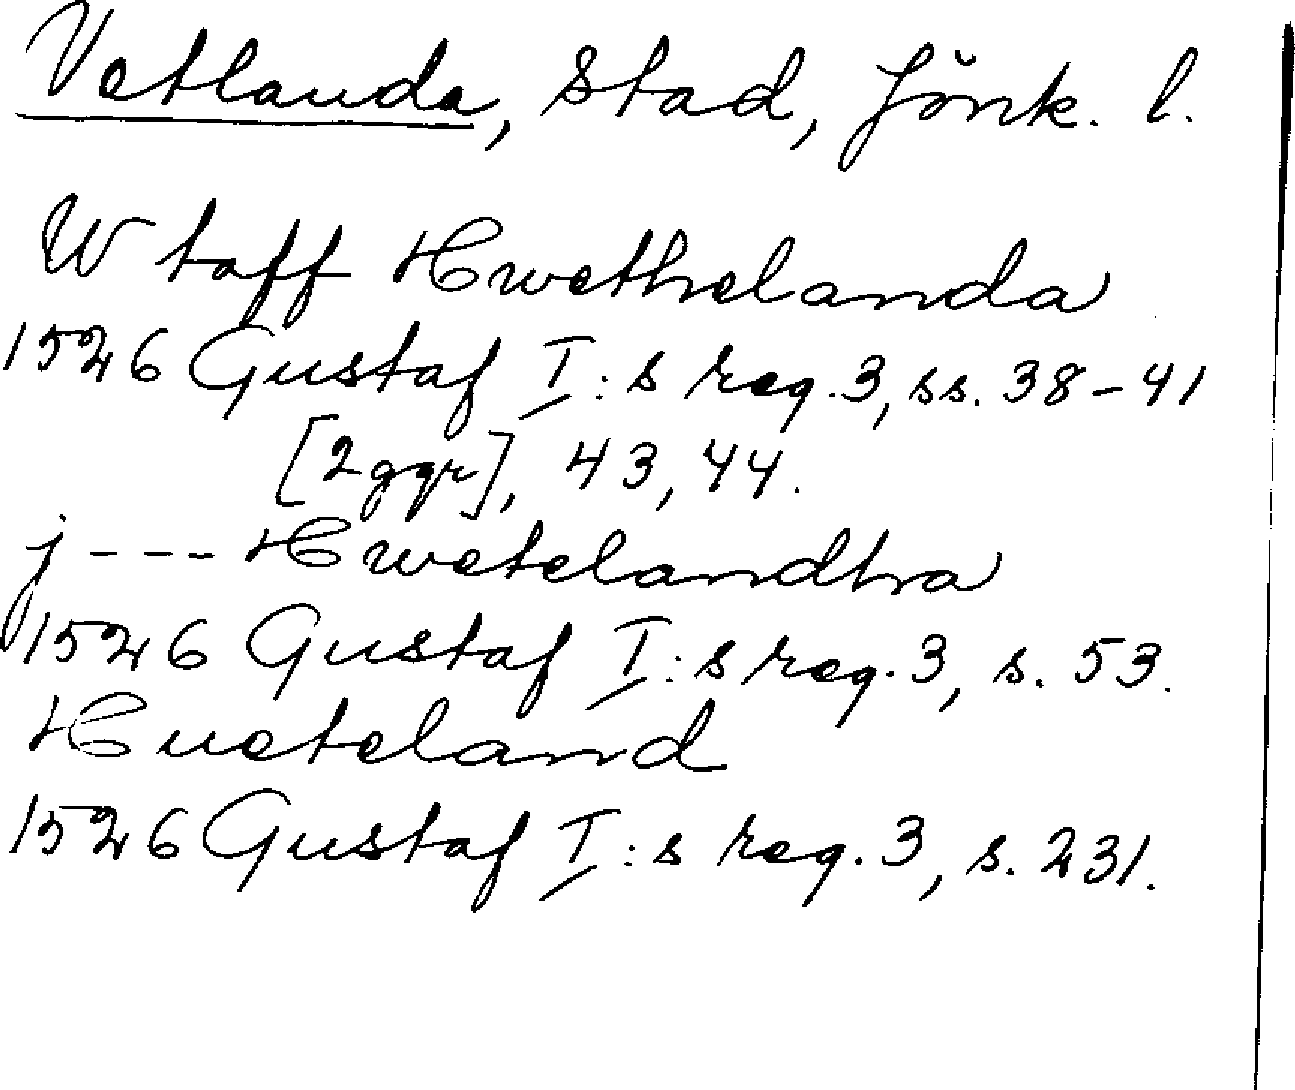 Vetlanda, stad, Jönk. l.
W taff Hwethelanda
1526 Gustaf I:s reg. 3, ss. 38-41
[2 ggr], 43, 44.
j --- Hwetelandha
1526 Gustaf I:s reg. 3, s. 53.
Hueteland
1526 Gustaf I:s reg. 3, s. 231.